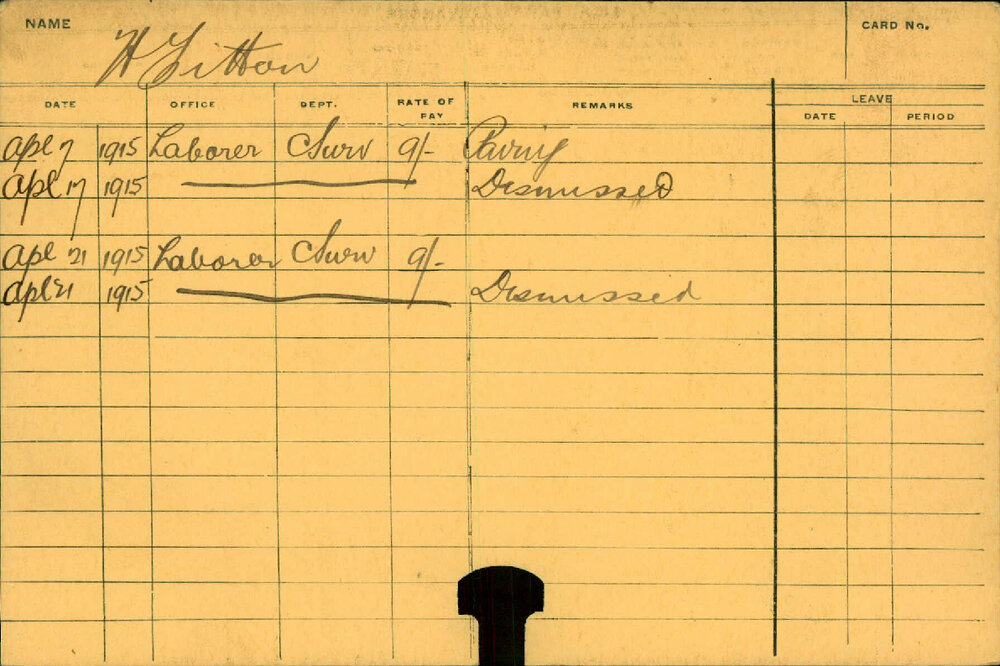 NAME H Fitton CARD No.
DATE OFFICE DEPT. RATE OF PAY REMARKS LEAVE
DATE PERIOD
Apl 7 1915 Laborer CSurv 9/- Paving
Apl 17 1915 Dismissed
Apl 21 1915 Laborer CSurv 9/-
Apl 21 1915 Dismissed